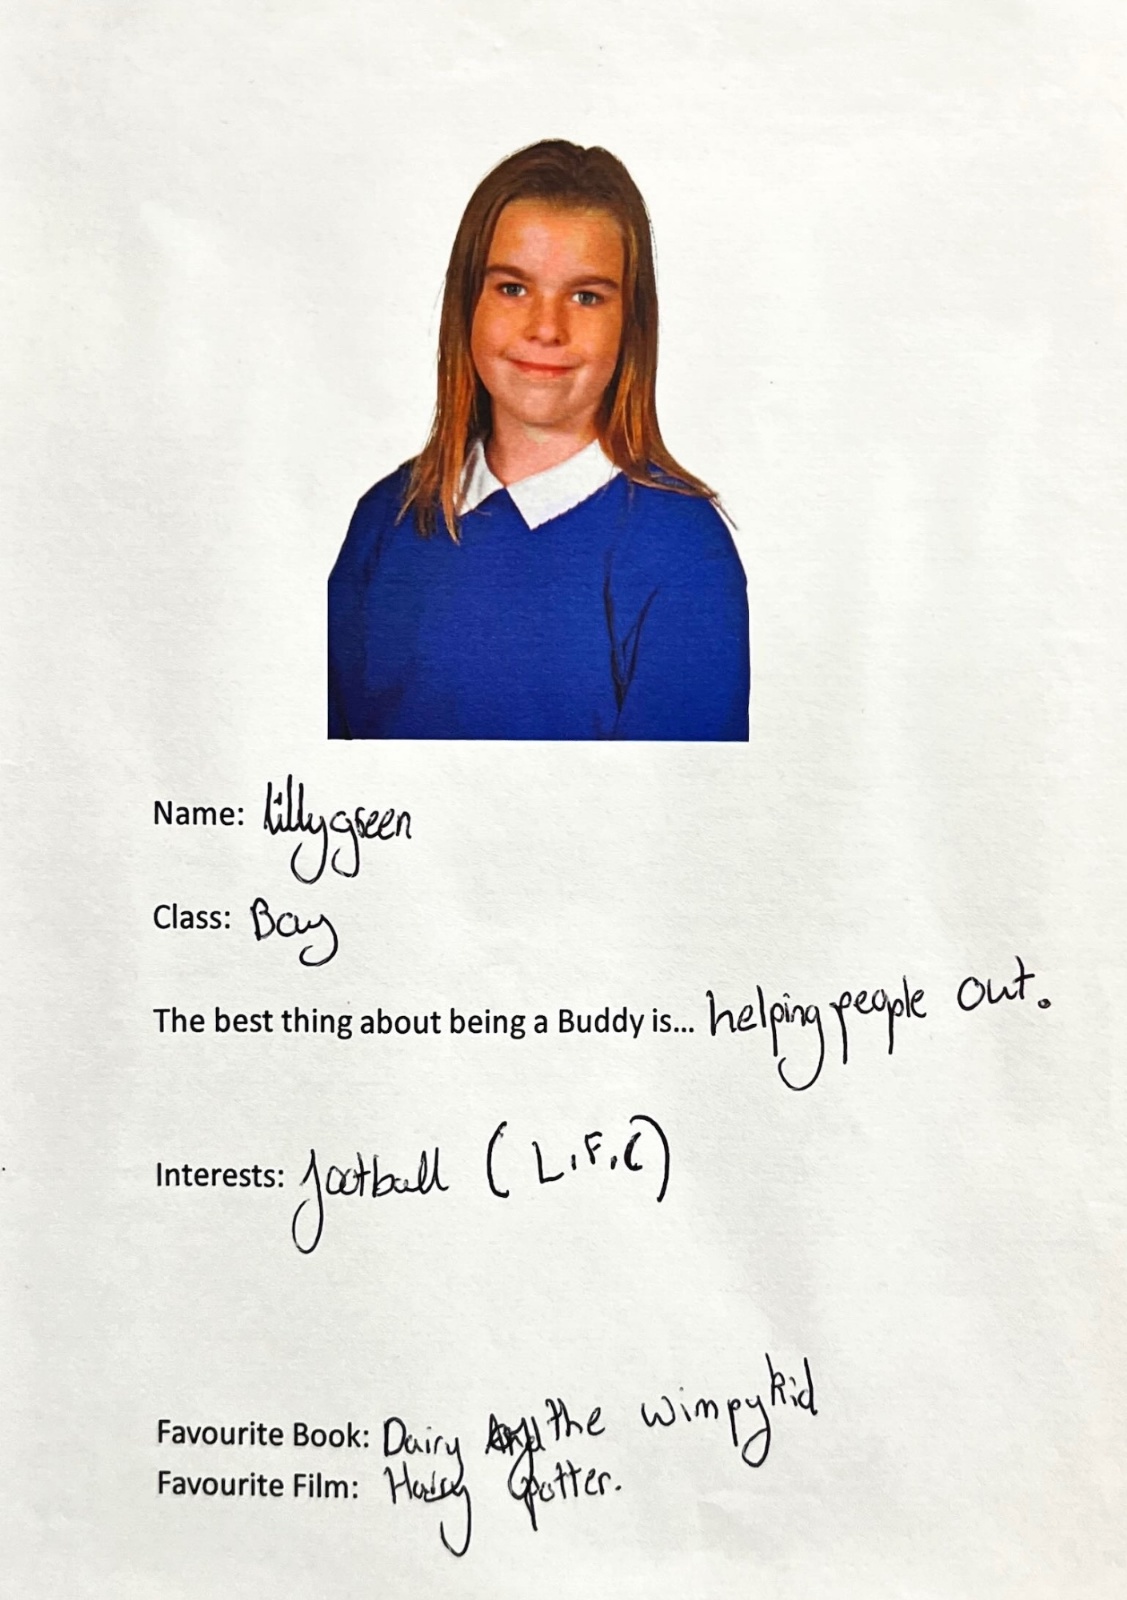 Name: Lilly green
Class: Bay
The best thing about being a Buddy is... helping people out.
Interests: football (L.F.C)
Favourite Book: Dairy the wimpy kid
Favourite Film: Harry potter.